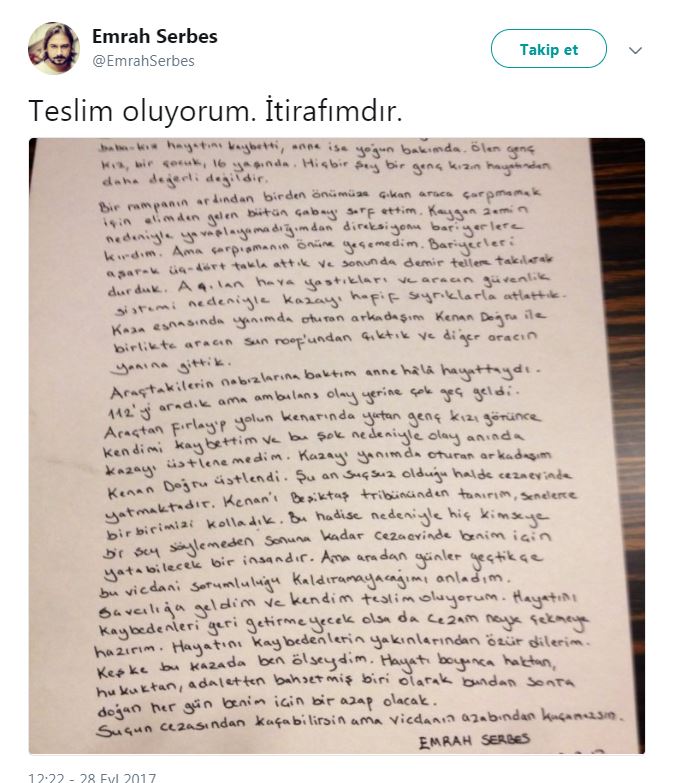 Emrah Serbes
@EmrahSerbes
Takip et
Teslim oluyorum. İtirafımdır.
baba-kız hayatını kaybetti, anne ise yoğun bakımda. Ölen genç
kız, bir çocuk, 16 yaşında. Hiçbir şey bir genç kızın hayatından
daha değerli değildir.
Bir rampanın ardından birden önümüze çıkan araca çarpmamak
için elimden gelen bütün çabayı sarf ettim. Kaygan zemin
nedeniyle yavaşlayamadığımdan direksiyonu bariyerlere
kırdım. Ama çarpışmanın önüne geçemedim. Bariyerleri
aşarak üç-dört takla attık ve sonunda demir tellere takılarak
durduk. Açılan hava yastıkları ve aracın güvenlik
sistemi nedeniyle kazayı hafif sıyrıklarla atlattık.
Kaza esnasında yanımda oturan arkadaşım Kenan Doğru ile
birlikte aracın sun roof'undan çıktık ve diğer aracın
yanına gittik.
Araçtakilerin nabızlarına baktım anne hâlâ hayattaydı.
112'yi aradık ama ambulans olay yerine çok geç geldi.
Araçtan fırlayıp yolun kenarında yatan genç kızı görünce
kendimi kaybettim ve bu şok nedeniyle olay anında
kazayı üstlenemedim. Kazayı yanımda oturan arkadaşım
Kenan Doğru üstlendi. Şu an suçsuz olduğu halde cezaevinde
yatmaktadır. Kenan'ı Beşiktaş tribününden tanırım, senelerce
birbirimizi kolladık. Bu hadise nedeniyle hiç kimseye
bir şey söylemeden sonuna kadar cezaevinde benim için
yatabilecek bir insandır. Ama aradan günler geçtikçe
bu vicdani sorumluluğu kaldıramayacağımı anladım.
Savcılığa geldim ve kendim teslim oluyorum. Hayatını
kaybedenleri geri getirmeyecek olsa da cezam neyse çekmeye
hazırım. Hayatını kaybedenlerin yakınlarından özür dilerim.
Keşke bu kazada ben ölseydim. Hayatı boyunca haktan,
hukuktan, adaletten bahsetmiş biri olarak bundan sonra
doğan her gün benim için bir azap olacak.
Suçun cezasından kaçabilirsin ama vicdanın azabından kaçamazsın.
EMRAH SERBES
12:22 - 28 Eyl 2017